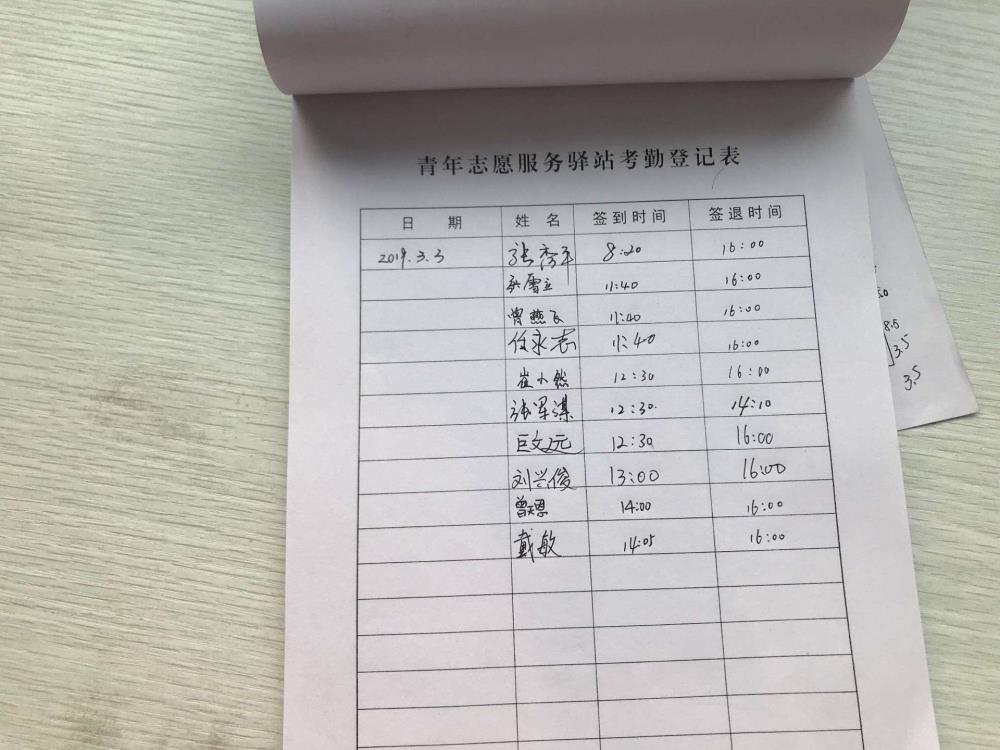 青年志愿服务驿站考勤登记表
日 期 姓 名 签到时间 签退时间
2019.3.3 张秀平 8:20 16:00
11:40 16:00
曾燕飞 11:40 16:00
任永志 11:40 16:00
崔小然 12:30 16:00
张军谋 12:30 14:10
巨文元 12:30 16:00
刘兴俊 13:00 16:00
曾天恩 14:00 16:00
戴敏 14:05 16:00
8.5
3.5
3.5